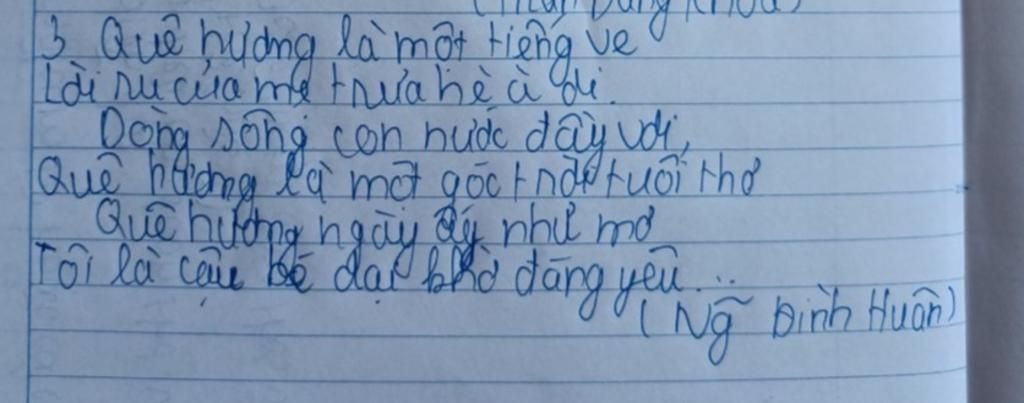 (Trần Đăng Khoa)
3 Quê hương là một tiếng ve
Lời ru của mẹ trưa hè à ơi.
Dòng sông con nước đầy vơi,
Quê hương là một góc trời tuổi thơ
Quê hương ngày ấy như mơ
Tôi là cậu bé dại khờ đáng yêu...
(Ng~ Đình Huân)